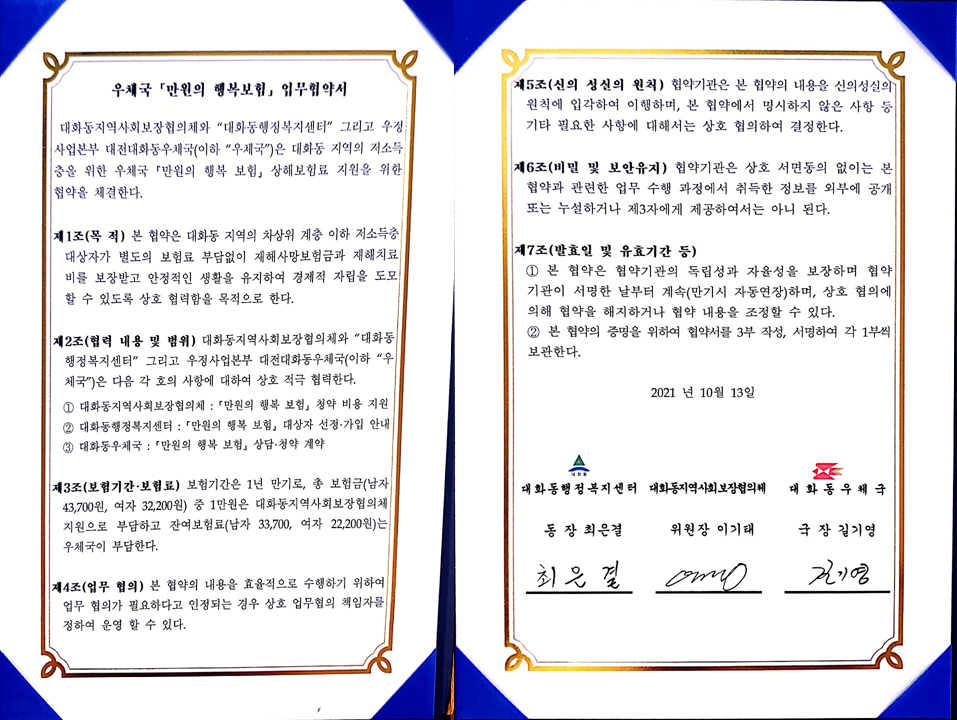 우체국「만원의 행복보험」업무협약서
대화동지역사회보장협의체와 “대화동행정복지센터” 그리고 우정
사업본부 대전대화동우체국(이하 “우체국”)은 대화동 지역의 저소득
층을 위한 우체국「만원의 행복 보험」상해보험료 지원을 위한
협약을 체결한다.
제1조(목 적) 본 협약은 대화동 지역의 차상위 계층 이하 저소득층
대상자가 별도의 보험료 부담없이 재해사망보험금과 재해치료
비를 보장받고 안정적인 생활을 유지하여 경제적 자립을 도모
할 수 있도록 상호 협력함을 목적으로 한다.
제2조(협력 내용 및 범위) 대화동지역사회보장협의체와 “대화동
행정복지센터” 그리고 우정사업본부 대전대화동우체국(이하 “우
체국”)은 다음 각 호의 사항에 대하여 상호 적극 협력한다.
① 대화동지역사회보장협의체 :「만원의 행복 보험」청약 비용 지원
② 대화동행정복지센터 :「만원의 행복 보험」대상자 선정·가입 안내
③ 대화동우체국 :「만원의 행복 보험」상담·청약 계약
제3조(보험기간·보험료) 보험기간은 1년 만기로, 총 보험금(남자
43,700원, 여자 32,200원) 중 1만원은 대화동지역사회보장협의체
지원으로 부담하고 잔여보험료(남자 33,700, 여자 22,200원)는
우체국이 부담한다.
제4조(업무 협의) 본 협약의 내용을 효율적으로 수행하기 위하여
업무 협의가 필요하다고 인정되는 경우 상호 업무협의 책임자를
정하여 운영 할 수 있다.
제5조(신의 성실의 원칙) 협약기관은 본 협약의 내용을 신의성실의
원칙에 입각하여 이행하며, 본 협약에서 명시하지 않은 사항 등
기타 필요한 사항에 대해서는 상호 협의하여 결정한다.
제6조(비밀 및 보안유지) 협약기관은 상호 서면동의 없이는 본
협약과 관련한 업무 수행 과정에서 취득한 정보를 외부에 공개
또는 누설하거나 제3자에게 제공하여서는 아니 된다.
제7조(발효일 및 유효기간 등)
① 본 협약은 협약기관의 독립성과 자율성을 보장하며 협약
기관이 서명한 날부터 계속(만기시 자동연장)하며, 상호 협의에
의해 협약을 해지하거나 협약 내용을 조정할 수 있다.
② 본 협약의 증명을 위하여 협약서를 3부 작성, 서명하여 각 1부씩
보관한다.
2021 년 10월 13일
대화동
대화동행정복지센터 대화동지역사회보장협의체 대화동우체국
동 장 최은결 위원장 이기태 국 장 길기영
최은결 길기영